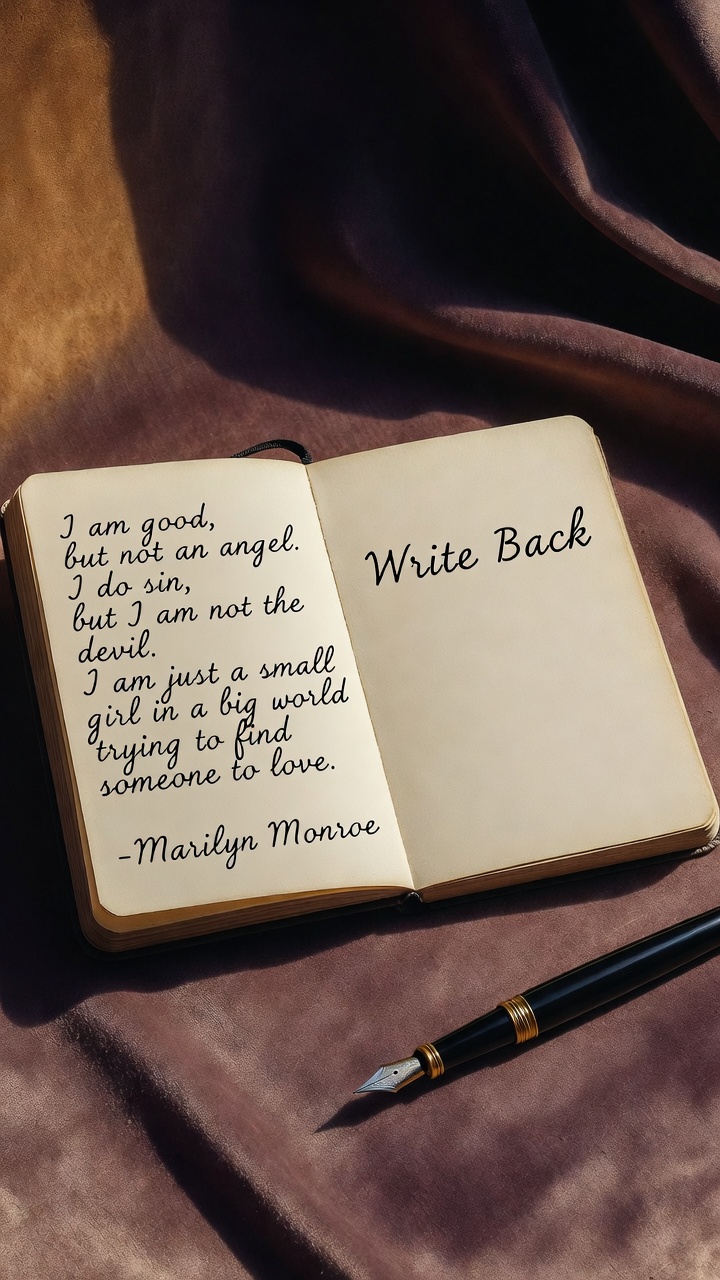 I am good,
but not an angel.
I do sin,
but I am not the
devil.
I am just a small
girl in a big world
trying to find
someone to love.
-Marilyn Monroe
Write Back